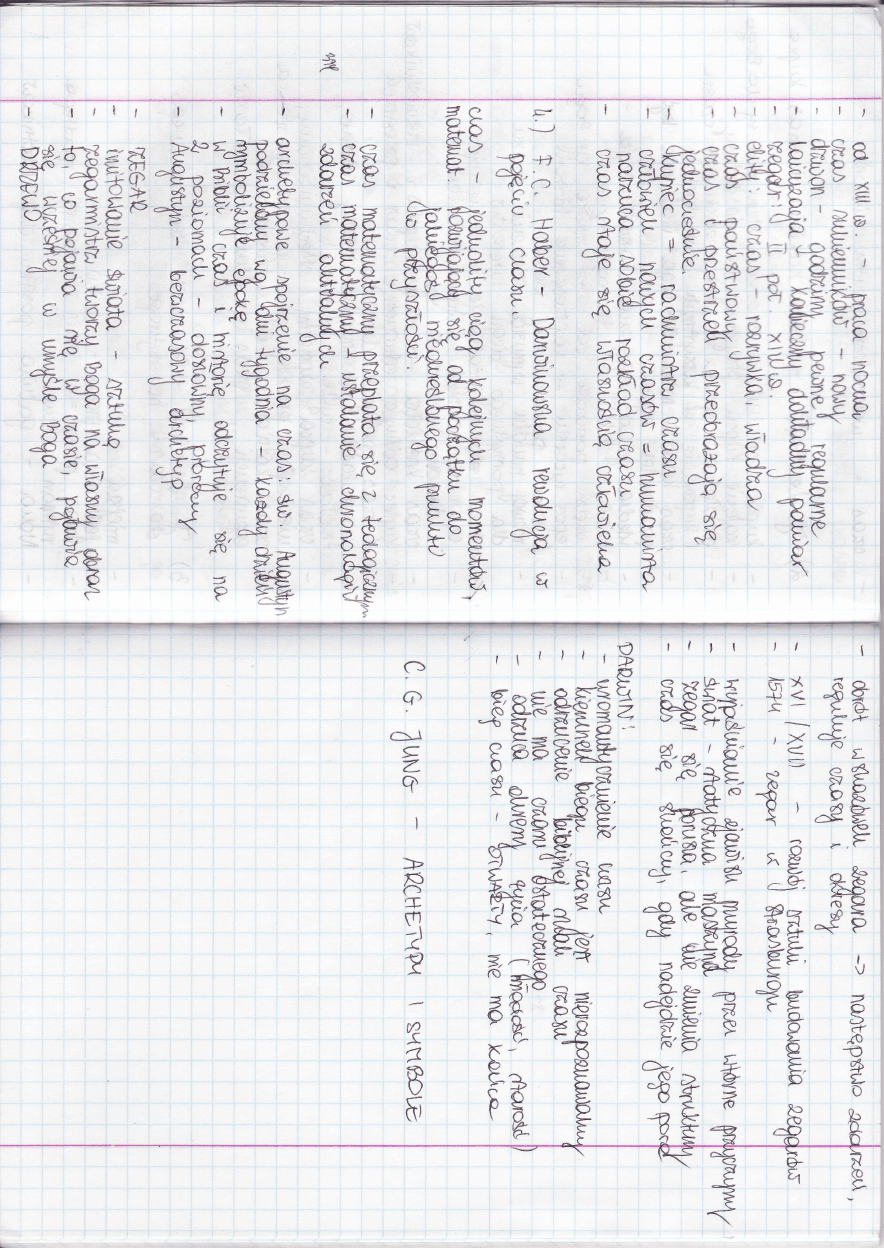 - od XIII w. - praca nocna
- czas sumienników - nowy
- dzwon - godziny pewne, regularne
- laicyzacja - konieczny dokładny pomiar
- zegary: II poł. XIV w.
- elity: czas - rozrywka, władza
- czas państwowy
- czas i przestrzeń przeobrażają się
jednocześnie.
- kupiec = rachmistrz czasu
- człowiek nowych czasów = humanista
narzuca sobie rozkład czasu
- czas staje się własnością człowieka
4.) F.C. Haber - Darwinowska rewolucja w
pojęciu czasu.
czas - jednolity ciąg kolejnych momentów,
matemat. poruszający się od początku do
jakiegoś nieokreślonego punktu
w przyszłości.
- czas matematyczny przeplata się z teologicznym
- czas matematyczny - ustalanie chronologii
zdarzeń aktualnych
- archetypowe spojrzenie na czas: św. Augustyn
podzielony wg dni tygodnia - każdy dzień
symbolizuje epokę
- w Biblii czas i historię odczytuje się na
2 poziomach - dosłowny, proroczy
- Augustyn - bezczasowy archetyp
- ZEGAR
- imitowanie świata - sztuka
- zegarmistrz tworzy Boga na własny obraz
- to, co pojawia się w czasie, pojawia
się wcześniej w umyśle Boga
- DZIEJÓW
- obrót wskazówek zegara -> następstwo zdarzeń,
reguluje czasy i okresy
- XVI/XVII - rozwój sztuki budowania zegarów
- 1574 - zegar w Strasburgu
- wyjaśnianie zjawisk przyrody przez wtórne przyczyny
- świat - statyczna maszyna
- zegar się porusza, ale nie zmienia struktury
- czas się skończy, gdy nadejdzie jego pora
DARWIN:
- uromantycznienie czasu
- kierunek biegu czasu jest nierozpoznawalny
- odrzucenie biblijnej skali czasu
- nie ma czasu ostatecznego
- odrzuca okresy życia (młodość, starość)
- bieg czasu - OTWARTY, nie ma końca
C. G. JUNG - ARCHETYPY I SYMBOLE